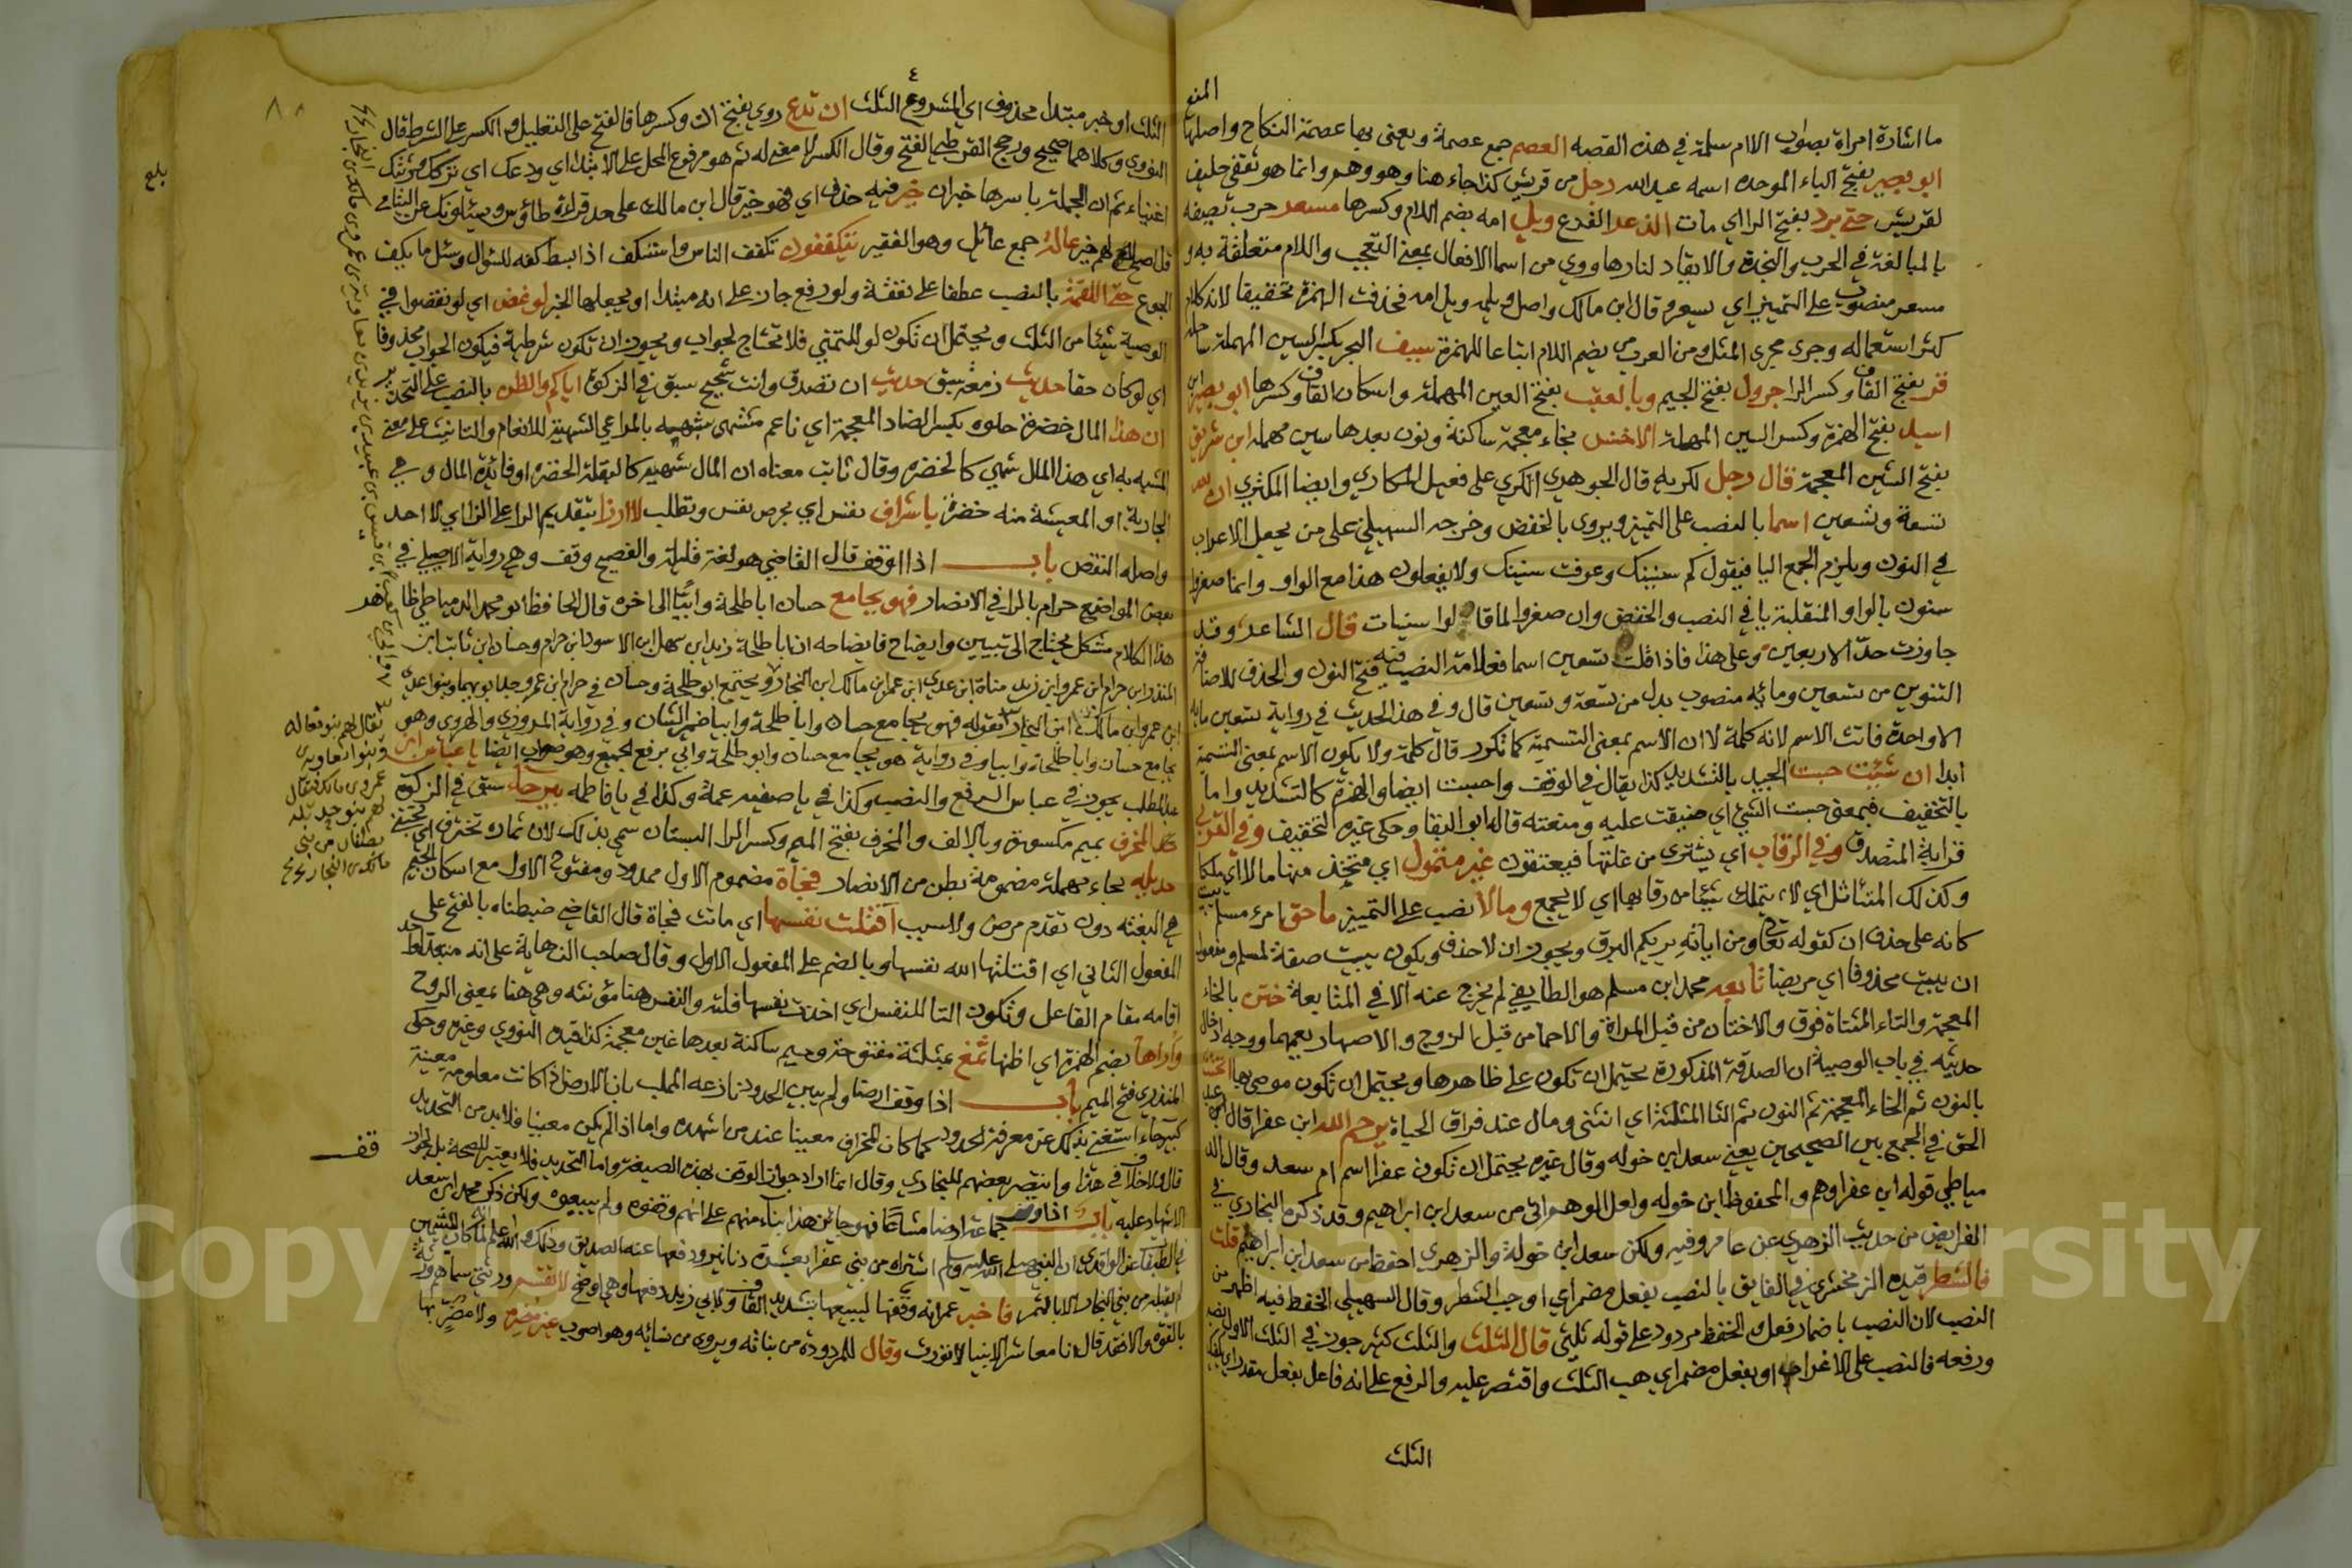 المنع
ما اشارة امراة بصواب الا ام سلمة في هذه القصه العصم جمع عصمة ويعنى بها عصمة النكاح واصلها
ابو بصير بفتح الباء الموحده اسمه عبد الله رجل من قريش كذا جاء هنا وهو وهم وانما هو ثقفي حليف
لقريش حتى برد بفتح الرا اي مات الذعر الفزع ويل امه بضم اللام وكسرها مسعر حرب تصيفه
بالمبالغة في الحرب والنجدة والايقاد لنارها ووي من اسما الافعال بمعنى التعجب واللام متعلقة به و
مسعر منصوب على التمييز اي يسعر وقال ابن مالك واصل ويلمه ويل امه فحذفت الهمزة تخفيفا لانه كلام
كثر استعماله وجرى مجرى المثل ومن العرب من يضم اللام اتباعا للهمزة سيف البحر بكسر السين المهملة ساحله
قر بفتح القاف وكسر الرا جرول بفتح الجيم وبالعقب بفتح العين المهملة واسكان القاف وكسرها ابو بصير ابن
اسيد بفتح الهمزة وكسر السين المهملة الاخنس بخاء معجمة ساكنة ونون بعدها سين مهملة ابن شريق
بفتح الشين المعجمة قال رجل لكريه قال الجوهري الكري على فعيل المكاري وايضا المكتري ان لله
تسعة وتسعين اسما بالنصب على التميز ويروى بالخفض وخرجه السهيلي على من يجعل الاعراب
في النون ويلزم الجمع اليا فيقول كم سنينك وعرفت سنينك ولا يفعلون هذا مع الواو وانما صغروا
سنون بالواو المنقلبة يا في النصب والخفض وان صغروا لما قالوا سنيات قال الشاعر وقد
جاوزت حد الاربعين وعلى هذا فاذا قلت تسعين اسما فعلامة النصب فيه فتح النون والحذف للاضافة
التنوين من تسعين ومائه منصوب بدل من تسعة وتسعين قال وفي هذا الحديث في رواية تسعين مايه
الا واحدة فانث الاسم لانه كلمة لا ان الاسم بمعنى التسمية كما تكرر قال كلمة ولا يكون الاسم بمعنى التسمية
ابدا ان شئت حبست الجبيد بالتشديد كذا يقال في الوقف واحبست ايضا والهمزة كالتشديد واما
بالتخفيف فبمعنى حبست الشي اي ضيقت عليه ومنعته قاله ابو البقا وحكى غيره التخفيف وفي القربى
قرابة المتصدق وفي الرقاب اي يشترى من غلتها فيعتقون غير متمول اي متخذ منها مالا اي ملكا
وكذلك المتاثل اي لا يتملك شيئا من رقابها اي لا يجمع ومالا نصب على التمييز ما حق امرء مسلم يبيت
كانه على حذف ان كقوله تعالى ومن اياته يريكم البرق ويجوز ان لا حذف ويكون يبيت صفة لمسلم ومفعول
ان يبيت محذوفا اي مريضا تابعه محمد ابن مسلم هو الطايفي لم يخرج عنه الا في المتابعة ختن بالخاء
المعجمة والتاء المثناة فوق والاختان من قبل المراة والاحما من قبل الزوج والاصهار يعمهما ووجه ادخال
حديثه في باب الوصية ان الصدقة المذكورة يحتمل ان تكون على ظاهرها ويحتمل ان تكون موصى بها
بالنون ثم الخاء المعجمة ثم النون ثم الثا المثلثة اي انثنى ومال عند فراق الحياة يرحم الله ابن عفرا قال
الحق في الجمع بين الصحيحين يعني سعد ابن خوله وقال غيره يحتمل ان تكون عفرا اسم ام سعد وقال الد
مياطي قوله ابن عفرا وهم والمحفوظ ابن خوله ولعل الوهم اتى من سعد ابن ابراهيم وقد ذكره البخاري في
الفرايض من حديث الزهري عن عامر وفيه ولكن سعد ابن خولة والزهري احفظ من سعد ابن ابراهيم قلت
فالشطر قيده الزمخشري في الفايق بالنصب بفعل مضمر اي اوجب الشطر وقال السهيلي الخفض فيه اظهر من
النصب لان النصب باضمار فعل والخفض مردود على قوله ثلثي قال الثلث والثلث كثير جوز في الثلث الاول النصب
ورفعه فالنصب على الاغراء او بفعل مضمر اي هب الثلث واقتصر عليه والرفع على انه فاعل بفعل مقدر اي
الثلث
الثلث او خبر مبتدا محذوف اي المشروع الثلث ان تدع روي بفتح ان وكسرها فالفتح على التعليل والكسر على الشرط قال
النووي وكلاهما صحيح ورجح القرطبي الفتح وقال الكسر لا معنى له ثم هو مرفوع المحل على الابتدا اي ودعك اي تركك ورثتك
اغنياء ثم ان الجملة باسرها خبران خير فيه حذف اي فهو خير قال ابن مالك على حد قراءة طاوس ويسئلونك عن اليتامى
قل اصلح لهم خير عالة جمع عائل وهو الفقير يتكففون تكفف الناس واستكف اذا بسط كفه للسؤال وسئل ما يكف
الجوع حتى اللقمة بالنصب عطفا على نفقة ولو رفع جاز على انه مبتدا او يجعلها الخبر لو غض اي لو نقصوا في
الوصية شيئا من الثلث ويحتمل ان تكون لو للتمني فلا تحتاج لجواب ويجوز ان تكون شرطية فيكون الجواب محذوفا
اي لو كان حقا حديث زمعة سبق حديث ان تصدق وانت شحيح سبق في الزكوة اياكم والظن بالنصب على التحذير
ان هذا المال خضرة حلوه بكسر الضاد المعجمة اي ناعم مشتهى شبهه بالمراعي الشهية للانعام والتانيث على معنى
المشبه به اي هذا المال شي كالخضره وقال ثابت معناه ان المال شبهه كالبقلة الخضره او فائدة المال وهي
الجارية او المعيشة منه خضرة باشراف نفس اي بحرص نفس وتطلب لا ارزا بتقديم الرا على الزاي لا احد
واصله النقص باب اذا اوقف قال القاضي هو لغة قليلة والفصيح وقف وهي رواية الاصيلي في
بعض المواضع حرام بالرا في الانصار فهو يجامع حسان ابا طلحة وابيّا الى اخره قال الحافظ ابو محمد الدمياطي ظاهر
هذا الكلام مشكل يحتاج الى تبيين وايضاح فايضاحه ان ابا طلحة زيد ابن سهل ابن الاسود ابن حرام وحسان ابن ثابت ابن
المنذر ابن حرام ابن عمرو ابن زيد مناة ابن عدي ابن عمرو ابن مالك ابن النجار ويجتمع ابو طلحة وحسان في حرام ابن عمرو
ابن عمرو ابن مالك ابن النجار بقوله فهو يجامع حسان وابا طلحة وابيا ضمير الشان وفي رواية المروزي والهروي وهو
يجامع حسان وابا طلحة وابيا وفي رواية هو يجامع حسان وابو طلحة وابي برفع الجميع وهو صواب ايضا يا عباس ابن
عبد المطلب يجوز في عباس الرفع والنصب وكذا في يا صفيه عمة وكذا في يا فاطمه بيرحاء سبق في الزكوة
المخرف بميم مكسورة وبالالف والمخرف بفتح الميم وكسر الرا البستان سمي بذلك لان ثماره تخترف اي تجتنى
حديله بحاء مهملة مضمومة بطن من الانصار فجأة مضموم الاول ممدود ومفتوح الاول مع اسكان الجيم
هي البغته دون تقدم مرض ولا سبب افتلتت نفسها اي ماتت فجاة قال القاضي ضبطناه بالفتح على
المفعول الثاني اي افتلتها الله نفسها وبالضم على المفعول الاول وقال صاحب النهاية على انه متعد لواحد
اقامه مقام الفاعل وتكون التا للنفس اي اخذت نفسها فلتة والنفس هنا مؤنثه وهي هنا بمعنى الروح
واراها بضم الهمزة اي اظنها ثمغ بمثلثة مفتوحة وميم ساكنة بعدها غين معجمة كذا قيده النووي وغيره وحكى
المنذري فتح الميم باب اذا وقف ارضا ولم يبين الحدود نازعه المهلب بان الارض اذا كانت معلومة معينة
كبيرحاء استغنى بذلك عن معرفة الحدود كما كان المخراف معينا عند من اشهده واما اذا لم يكن معينا فلا بد من التحديد
قال ولا خلاف في هذا وانتصر بعضهم للبخاري وقال انما اراد جواز الوقف بهذه الصيغة واما التحديد فلا يعتبر للصحة بل لجواز
الاشهاد عليه باب اذا وقف جماعة ارضا مشاعا فهو جائز هذا بناء منهم على انهم وقفوه ولم يبيعوه ولكن ذكر محمد ابن سعد
في الطبقات عن الواقدي ان النبي صلى الله عليه وسلم اشتراه من بني عفرا بعشرة دنانير ودفعها عنه الصديق وذلك والله اعلم
فاخبر عمر انه وقفها ليبيعها بتشديد القاف
بالقوه والا فقد قال انا معاشر الانبيا لا نورث وقال للمردودة من بناته ويروى من نسائه وهو اصوب غير مضرة ولا مضر بها
قف
بلغ
يقال لهم بنو مغاله
Copyright © King Saud University